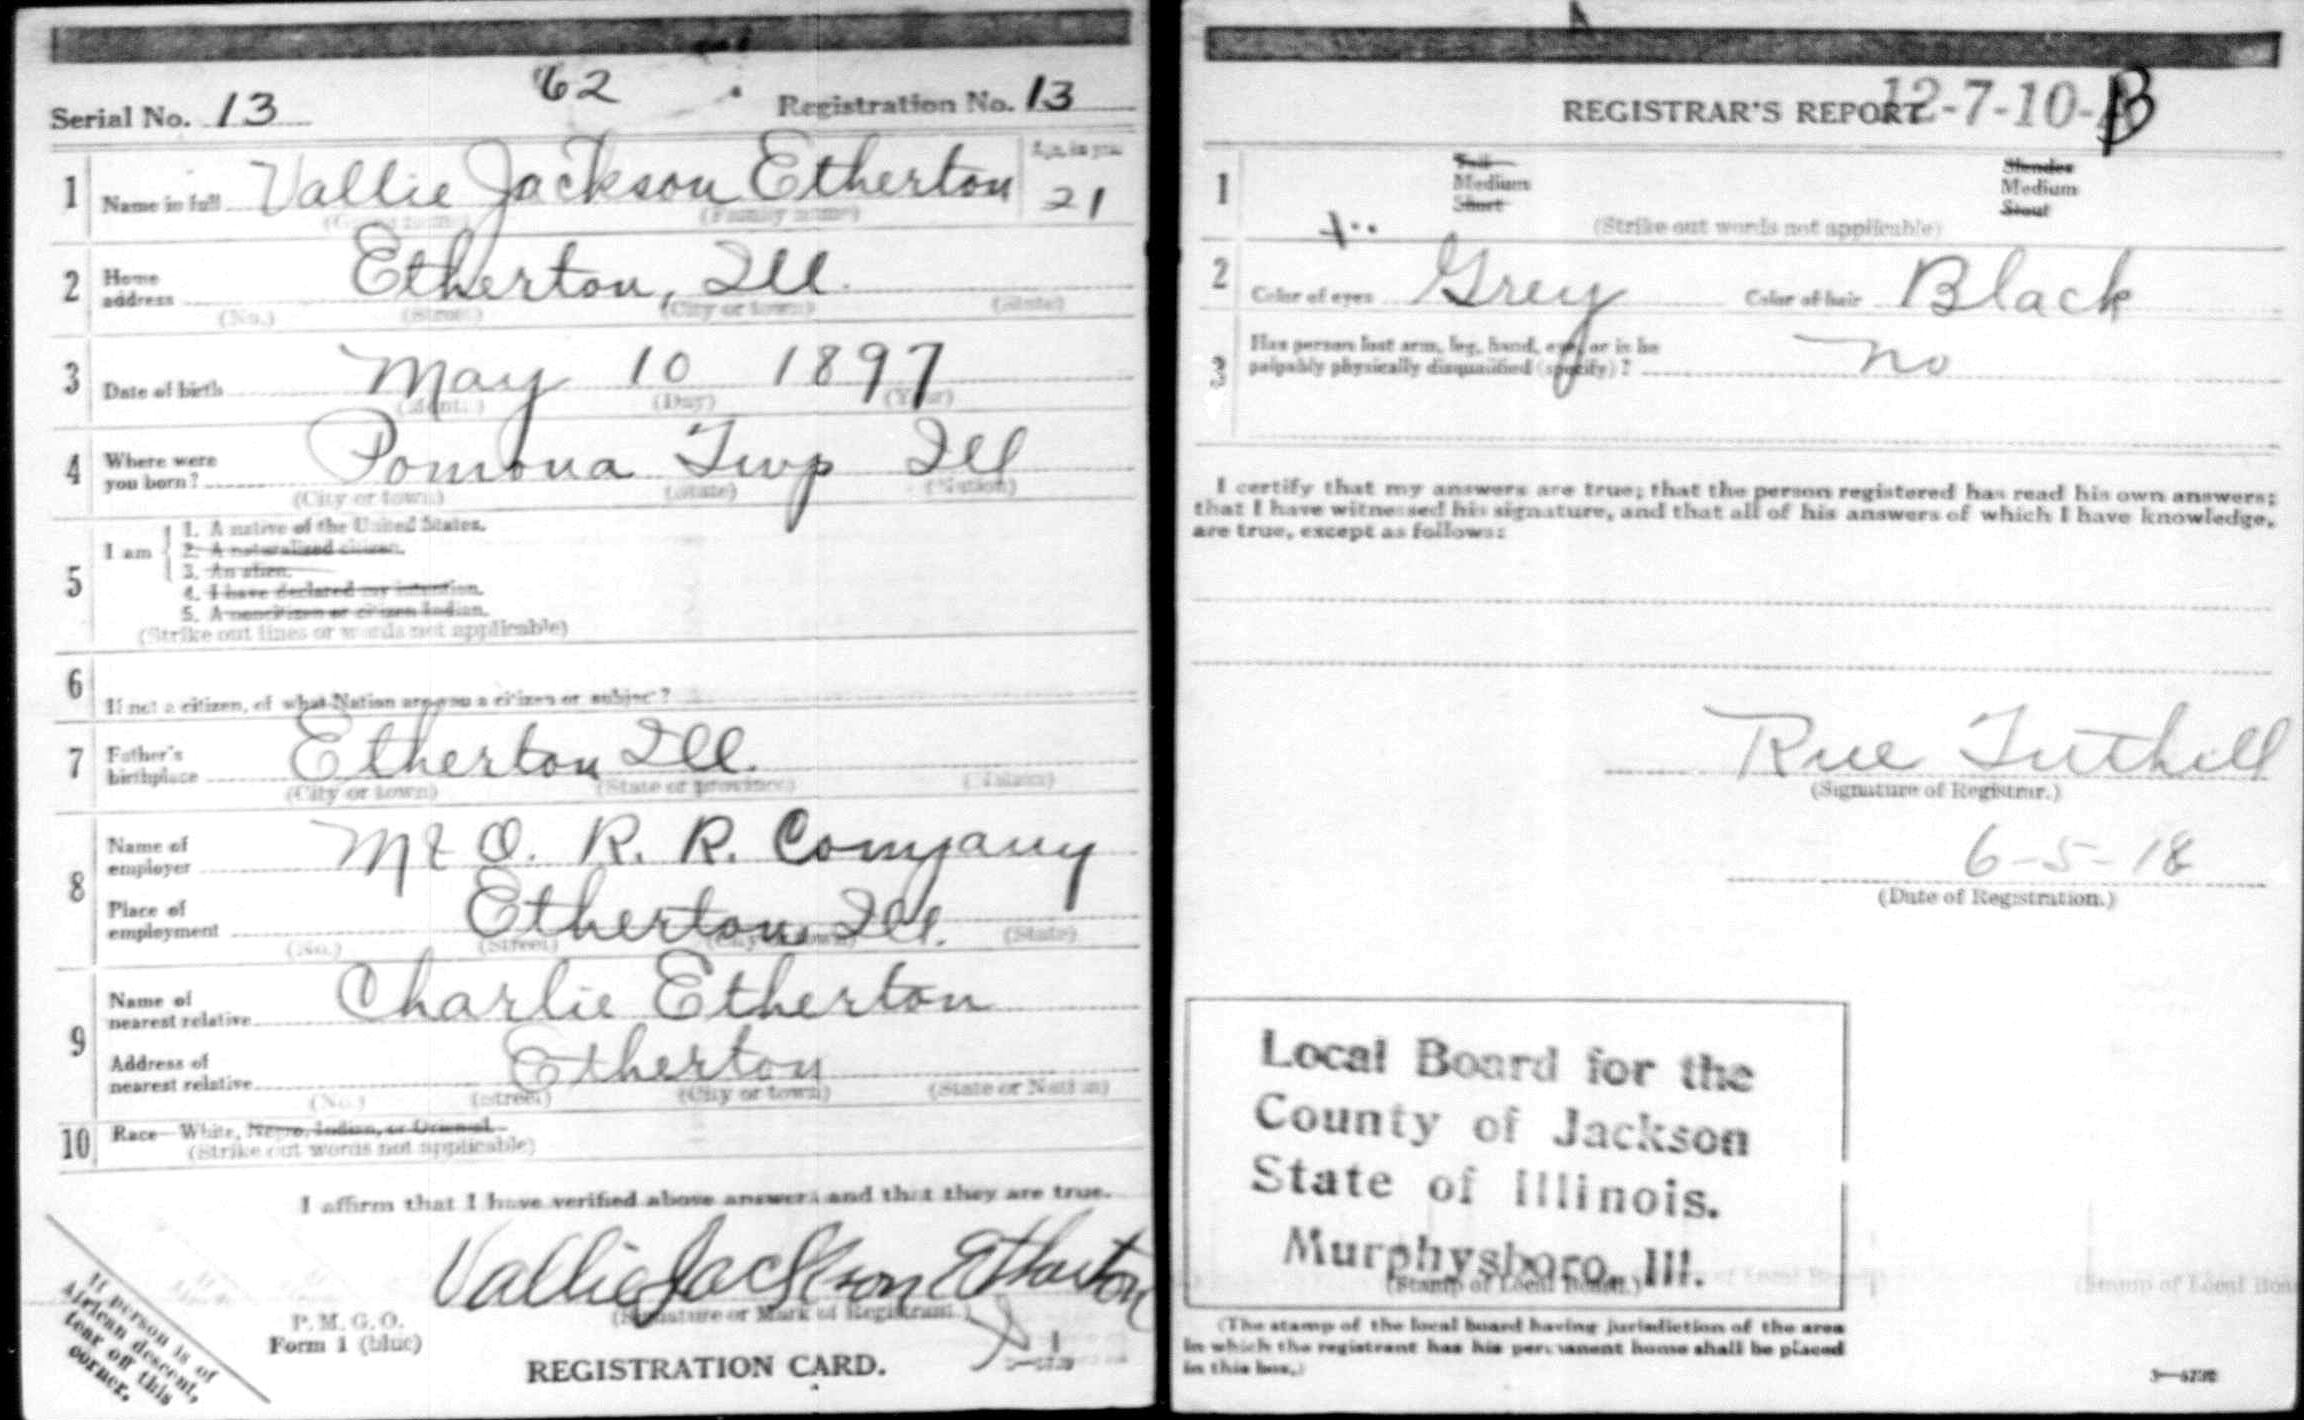 62
Serial No. 13 Registration No. 13
1 Name in full Vallie Jackson Etherton 21
(Given name) (Family name) Age, in yrs.
2 Home address Etherton, Ill.
(No.) (Street) (City or town) (State)
3 Date of birth May 10 1897
(Month) (Day) (Year)
4 Where were you born? Pomona Twp Ill
(City or town) (State) (Nation)
5 I am
1. A native of the United States.
2. A naturalized citizen.
3. An alien.
4. I have declared my intention.
5. A noncitizen or citizen Indian.
(Strike out lines or words not applicable)
6 If not a citizen, of what Nation are you a citizen or subject?
7 Father's birthplace Etherton Ill.
(City or town) (State or province) (Nation)
8 Name of employer M & O. R. R. Company
Place of employment Etherton, Ill.
(No.) (Street) (City or town) (State)
9 Name of nearest relative Charlie Etherton
Address of nearest relative Etherton
(No.) (Street) (City or town) (State or Nation)
10 Race—White, Negro, Indian, or Oriental.
(Strike out words not applicable)
I affirm that I have verified above answers and that they are true.
Vallie Jackson Etharton
(Signature or Mark of Registrant.)
P. M. G. O.
Form 1 (blue)
REGISTRATION CARD.
If person is of
African descent,
tear off this
corner.
REGISTRAR'S REPORT 12-7-10- B
1 Tall Slender
Medium Medium
Short Stout
(Strike out words not applicable)
2 Color of eyes Grey Color of hair Black
3 Has person lost arm, leg, hand, eye, or is he
palpably physically disqualified (specify)? No
I certify that my answers are true; that the person registered has read his own answers;
that I have witnessed his signature, and that all of his answers of which I have knowledge,
are true, except as follows:
Rue Tuthill
(Signature of Registrar.)
6-5-18
(Date of Registration.)
Local Board for the
County of Jackson
State of Illinois.
Murphysboro, Ill.
(Stamp of Local Board.)
(The stamp of the local board having jurisdiction of the area
in which the registrant has his permanent home shall be placed
in this box.)
3—6739